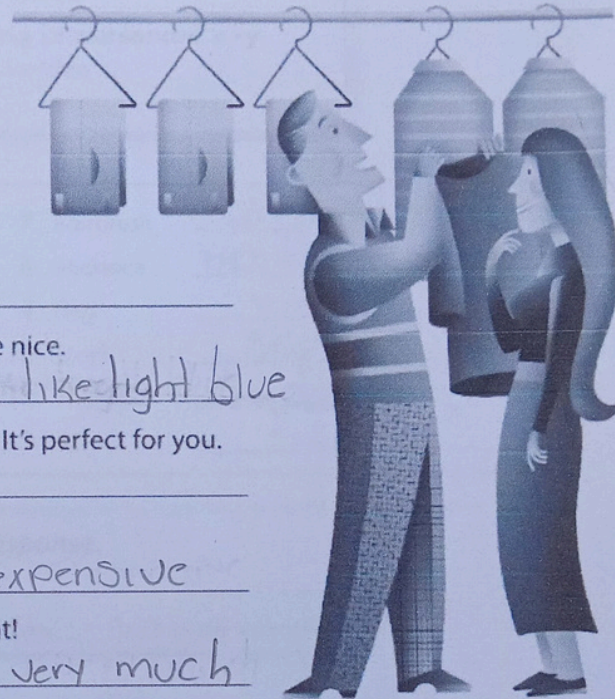 e nice.
like light blue
It's perfect for you.
expensive
t!
very much